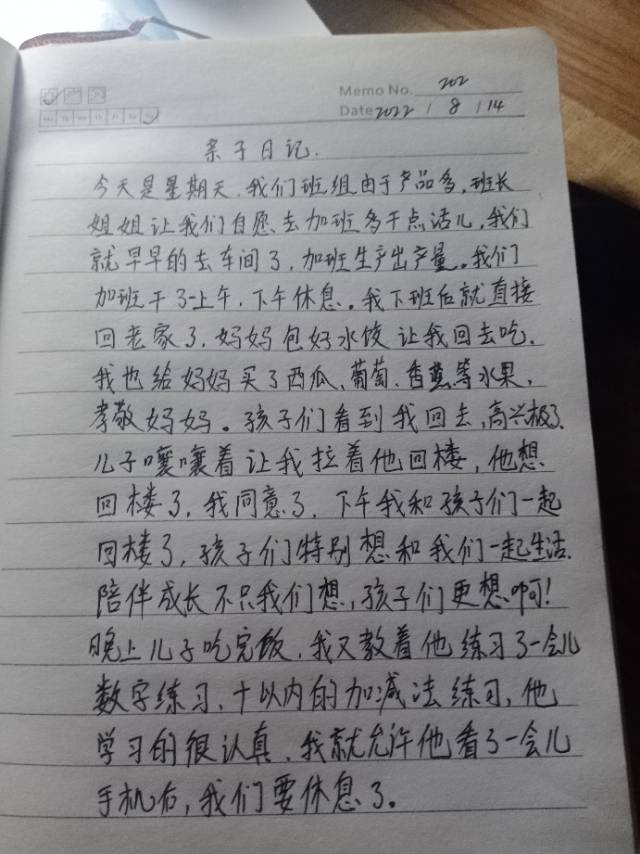 Memo No. 202
Date 2022 / 8 / 14
亲子日记.
今天是星期天,我们班组由于产品多,班长
姐姐让我们自愿去加班多干点活儿,我们
就早早的去车间了,加班生产出产量。我们
加班干了一上午,下午休息。我下班后就直接
回老家了,妈妈包好水饺让我回去吃.
我也给妈妈买了西瓜、葡萄、香蕉等水果,
孝敬妈妈。孩子们看到我回去,高兴极了.
儿子嚷嚷着让我拉着他回楼,他想
回楼了,我同意了,下午我和孩子们一起
回楼了,孩子们特别想和我们一起生活.
陪伴成长不只我们想,孩子们更想啊!
晚上儿子吃完饭,我又教着他练习了一会儿
数字练习、十以内的加减法练习,他
学习的很认真,我就允许他看了一会儿
手机后,我们要休息了。